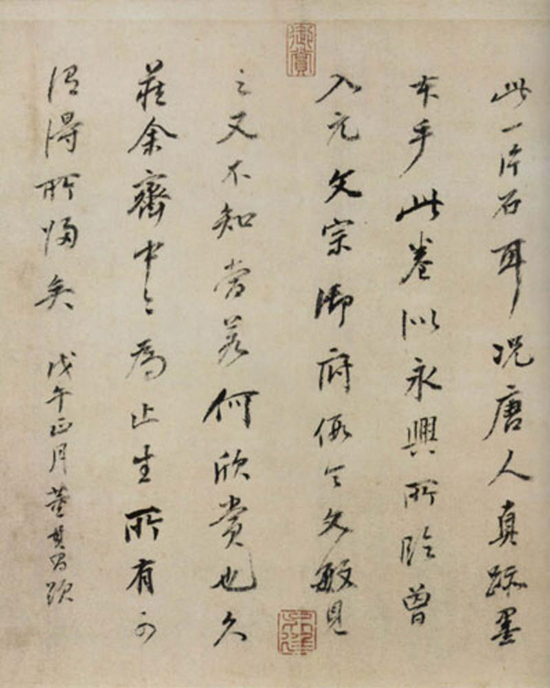 此一片石耳况唐人真跡墨
本乎此卷似永興所臨曾
入元文宗御府假令文敏見
之又不知當若何欣賞也久
藏余齋中今為止生所有可
謂得所歸矣 戊午正月董其昌跋
御賞